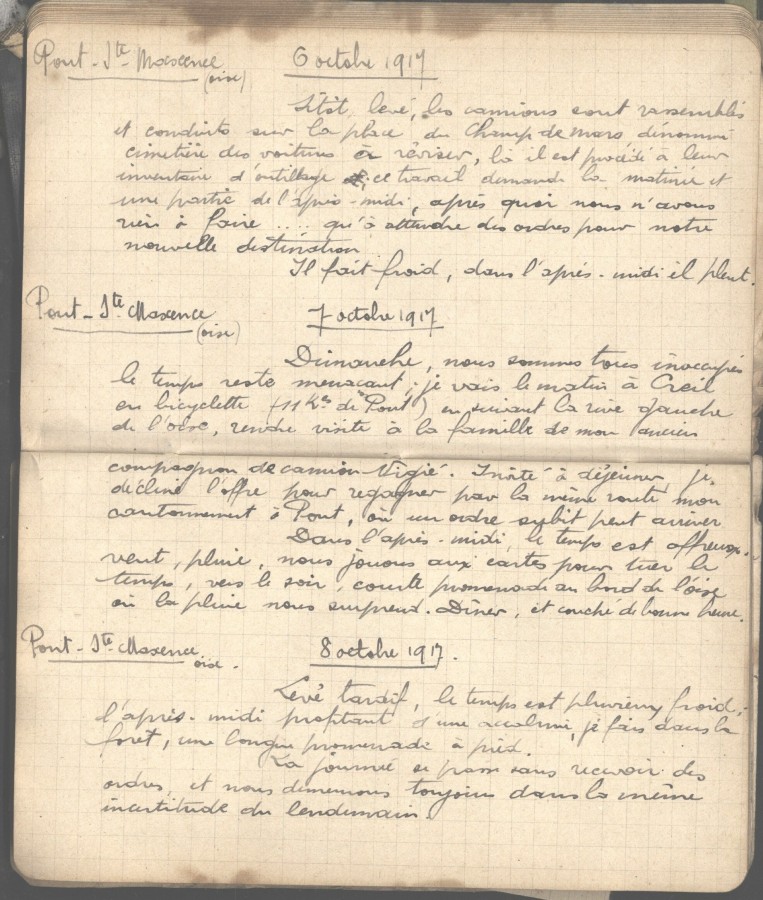 Pont-Ste-Maxence (oise) 6 octobre 1917
Sitôt levé, les camions sont rassemblés
et conduits sur la place du Champ de mars dénommé
cimetière des voitures à réviser, là il est procédé à leur
inventaire d'outillage, ce travail demande la matinée et
une partie de l'après-midi, après quoi nous n'avons
rien à faire .... qu'à attendre des ordres pour notre
nouvelle destination
Il fait froid, dans l'après-midi il pleut.
Pont-Ste-Maxence (oise) 7 octobre 1917
Dimanche, nous sommes tous inoccupés
le temps reste menaçant, je vais le matin à Creil
en bicyclette (11 Kms de Pont) en suivant la rive gauche
de l'oise, rendre visite à la famille de mon ancien
compagnon de camion Vigié. Invité à déjeuner, je
décline l'offre pour regagner par la même route mon
cantonnement à Pont, où un ordre subit peut arriver
Dans l'après-midi, le temps est affreux.
vent, pluie, nous jouons aux cartes pour tuer le
temps, vers le soir, courte promenade au bord de l'oise
où la pluie nous surprend. Dîner, et couché de bonne heure.
Pont-Ste-Maxence oise. 8 octobre 1917.
Levé tardif, le temps est pluvieux, froid,
l'après-midi profitant d'une accalmie, je fais dans la
forêt, une longue promenade à pied.
La journée se passe sans recevoir des
ordres, et nous demeurons toujours dans la même
incertitude du lendemain.